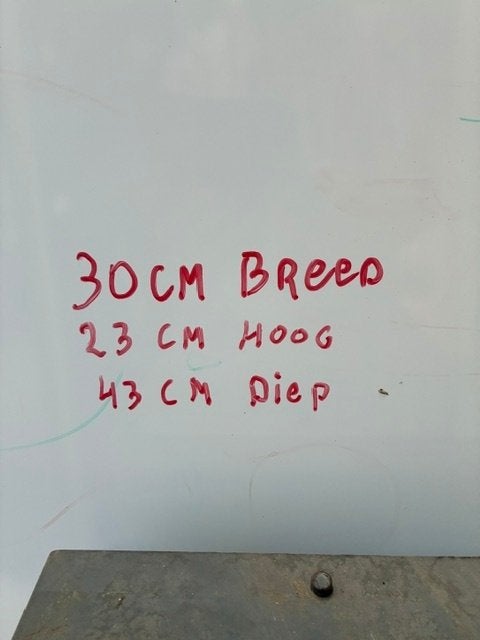 30 CM BReeD
23 CM HOOG
43 CM Diep